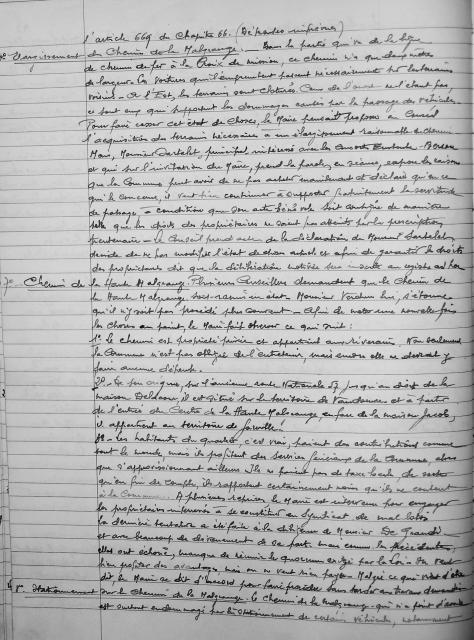 l'article 669 du Chapitre 66. (Dépenses imprévues)
Elargissement du Chemin de la Malgrange. Dans la partie qui va de la ligne
de chemin de fer à la Croix de mission, ce chemin n'a que deux mètres
de largeur. Les voitures qui l'empruntent passent nécessairement sur les terrains
voisins - A l'Est, les terrains sont clôturés. Ceux de l'ouest ne l'étant pas,
ce sont eux qui supportent les dommages causés par le passage des véhicules.
Pour faire cesser cet état de choses, le Maire pensait proposer au Conseil
l'acquisition des terrains nécessaires à un élargissement raisonnable du chemin
Mais, Monsieur principal intéressé
et qui sur l'invitation du Maire, prend la parole en séance, expose les raisons
que la Commune peut avoir de ne pas acheter maintenant et déclare qu'en ce
qui le concerne, il veut bien continuer à supporter gratuitement la servitude
de passage à condition que son acte bénévole soit contenu de manière
telle que les droits des propriétaires ne soient pas atteints par la prescription
trentenaire - Le Conseil prend acte de la déclaration de Monsieur
décide de ne pas modifier l'état de chose actuel et afin de garantir les droits
des propriétaires dit que la délibération sera inscrite au registre
7° Chemin de la Haute Malgrange. Plusieurs Conseillers demandent que le Chemin de
la Haute Malgrange soit remis en état. Monsieur s'étonne
qu'il n'y soit pas procédé plus souvent - Afin de mettre une nouvelle fois
les choses au point, le Maire fait observer ce qui suit :
1° le chemin est propriété privée et appartient aux riverains. Non seulement
la Commune n'est pas obligée de l'entretenir, mais encore elle ne devrait y
faire aucune dépense.
2° - De son origine, sur l'ancienne route Nationale 57, jusqu'au droit de la
maison il est situé sur le territoire de Vandoeuvre et à partir
de l'entrée du Centre de la Haute Malgrange, en face de la maison Jacob,
il appartient au territoire de Jarville.
3° - les habitants du quartier, c'est vrai, paient des contributions comme
tout le monde, mais ils profitent des services généraux de la Commune, alors
que s'approvisionnant ailleurs ils ne paient pas de taxe locale, de sorte
qu'en fin de compte, ils rapportent certainement moins qu'ils ne coûtent
à la Commune. A plusieurs reprises, le Maire est intervenu pour engager
les propriétaires intéressés à se constituer en Syndicat de mal lotis
La dernière tentative a été faite à la diligence de Monsieur De Grandi
et avec beaucoup de dévouement de sa part, mais comme les précédentes,
elles ont échoué, manque de réunir le quorum exigé par la loi. On veut
bien profiter des avantages, mais on ne veut rien payer. Malgré ce qui vient d'être
dit, le Maire se dit d'accord pour faire procéder
8° Stationnement sur le Chemin de la Malgrange. Le chemin de la Malgrange - qui n'a point d'accès
est surtout endommagé par le stationnement de certains véhicules, notamment